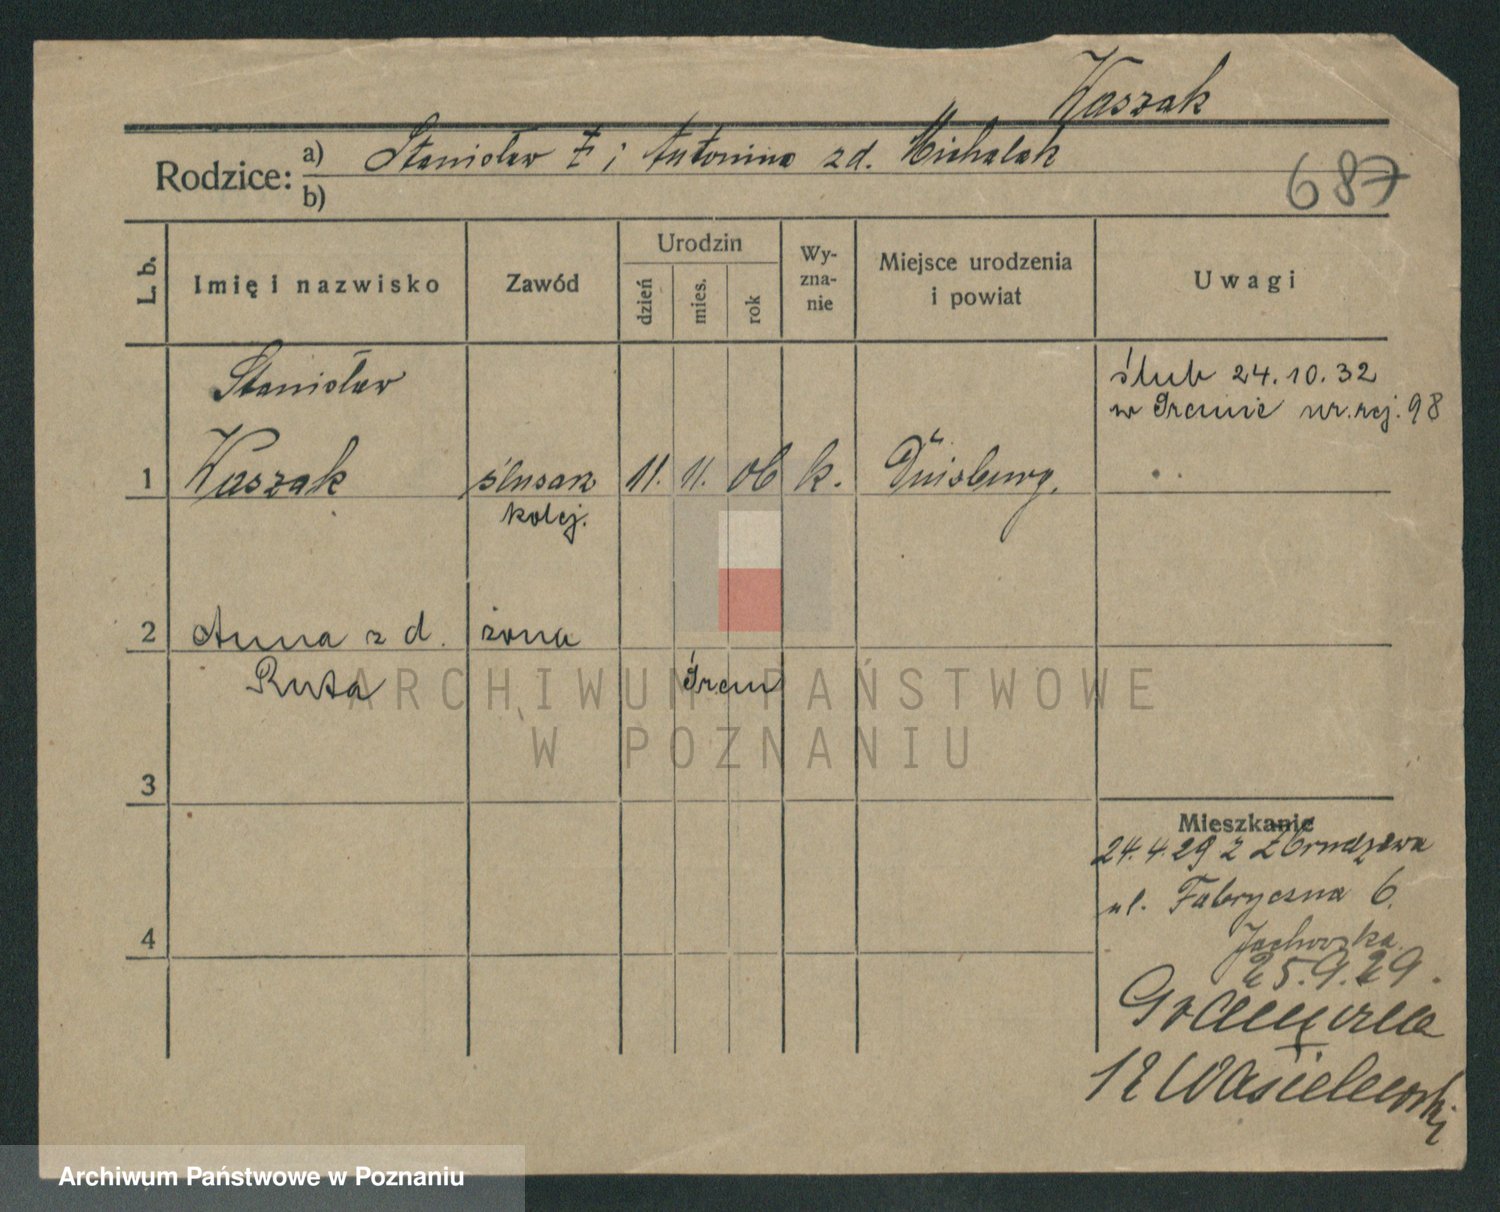 Waszak
Rodzice: a) Stanisław † i Antonina z d. Michalak
b)
687
L. b.
Imię i nazwisko
Zawód
Urodzin
dzień
mies.
rok
Wy-
zna-
nie
Miejsce urodzenia
i powiat
Uwagi
Stanisław
ślub 24.10.32
w Śremie nr. rej. 98
1 Waszak ślusarz 11. 11. 06 k. Duisburg.
kolej.
2 Anna z d. żona
Ruta Śrem
ARCHIWUM PAŃSTWOWE
W POZNANIU
3
Mieszkanie
24.4.29 z Zbrudzewa
ul. Fabryczna 6.
4
25.9.29.
12 Wasielewski
Archiwum Państwowe w Poznaniu